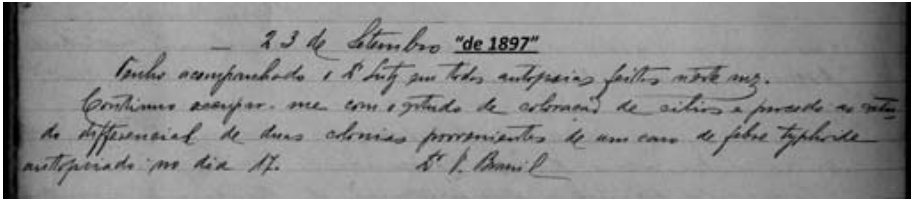 — 23 de Setembro "de 1897"
Tenho acompanhado o Dr Lutz em todas autopsias feitas neste mez.
Continuo occupar-me com o estudo de coloração de cilios e procedo ao estu-
do differencial de duas colonias provenientes de um caso de febre typhoide
auttopsiado no dia 17. Dr V. Brasil